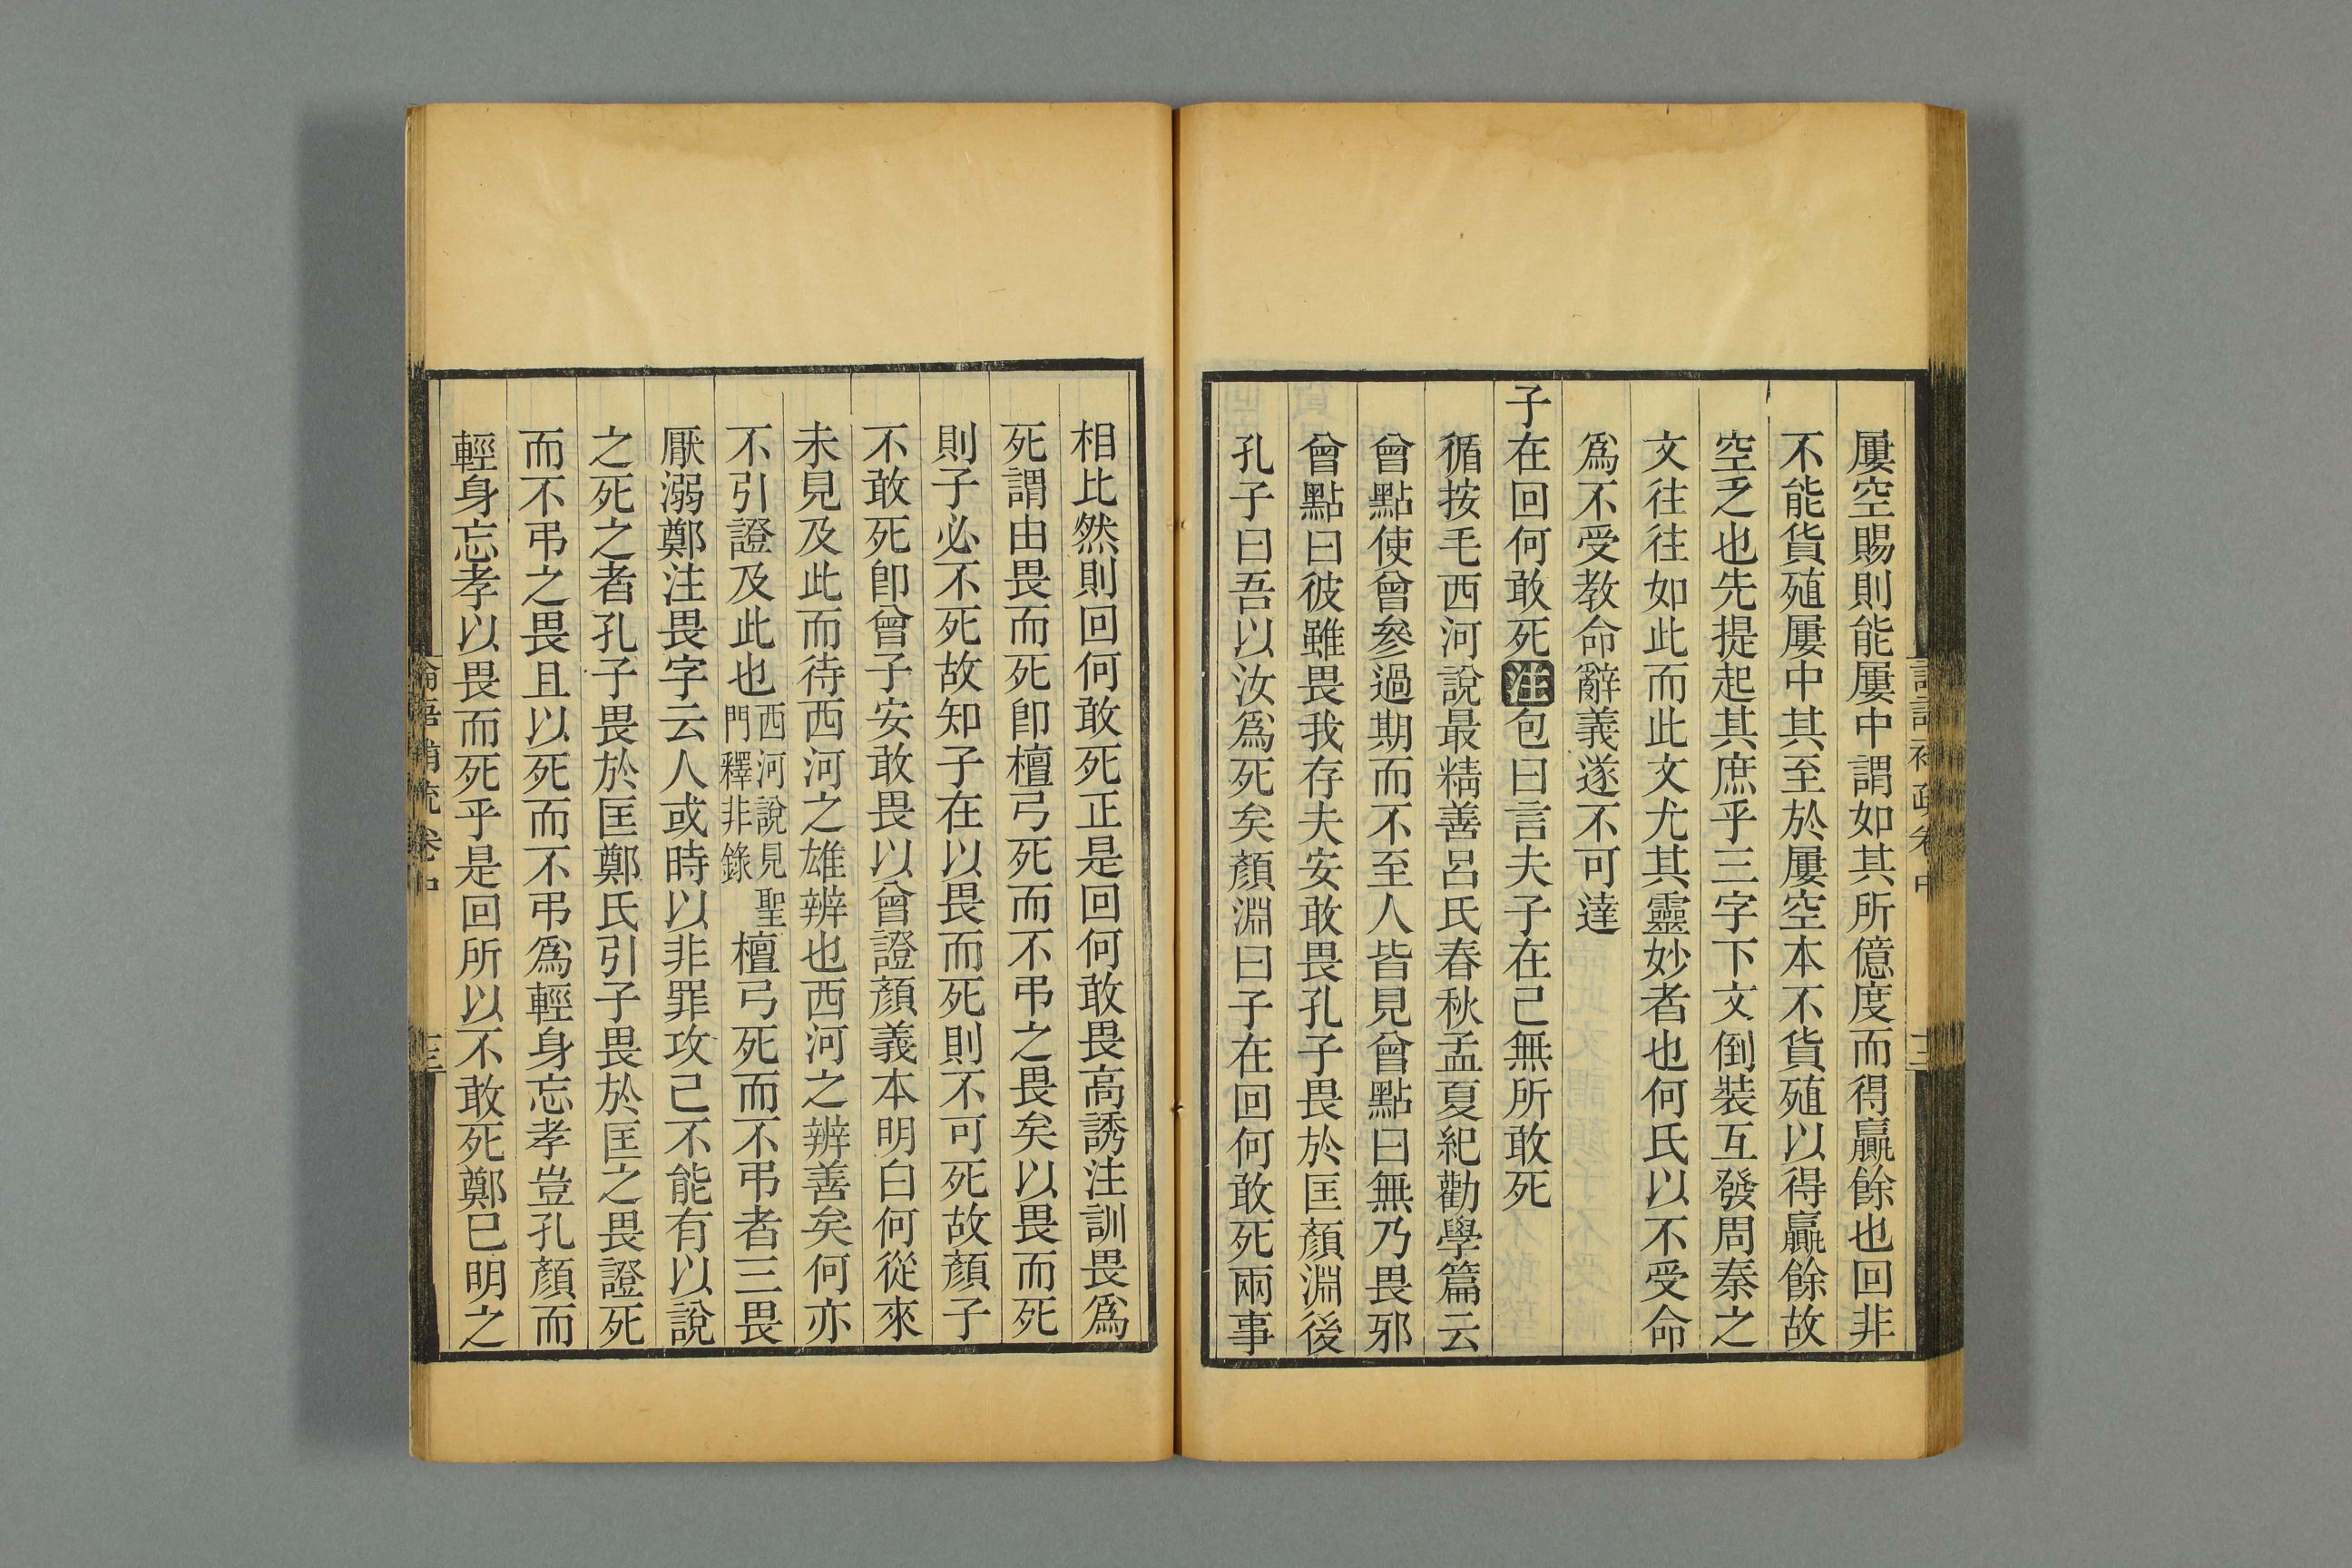 屢空賜則能屢中謂如其所億度而得贏餘也回非
不能貨殖屢中其至於屢空本不貨殖以得贏餘故
空乏也先提起其庶乎三字下文倒裝互發周秦之
文往往如此而此文尤其靈妙者也何氏以不受命
爲不受教命辭義遂不可達
子在回何敢死注包曰言夫子在己無所敢死
循按毛西河說最精善呂氏春秋孟夏紀勸學篇云
曾點使曾參過期而不至人皆見曾點曰無乃畏邪
曾點曰彼雖畏我存夫安敢畏孔子畏於匡顏淵後
孔子曰吾以汝爲死矣顏淵曰子在回何敢死兩事
相比然則回何敢死正是回何敢畏高誘注訓畏爲
死謂由畏而死卽檀弓死而不弔之畏矣以畏而死
則子必不死故知子在以畏而死則不可死故顏子
不敢死卽曾子安敢畏以曾證顏義本明白何從來
未見及此而待西河之雄辨也西河之辨善矣何亦
不引證及此也西河說見聖門釋非錄檀弓死而不弔者三畏
厭溺鄭注畏字云人或時以非罪攻己不能有以說
之死之者孔子畏於匡鄭氏引子畏於匡之畏證死
而不弔之畏且以死而不弔爲輕身忘孝豈孔顏而
輕身忘孝以畏而死乎是回所以不敢死鄭已明之